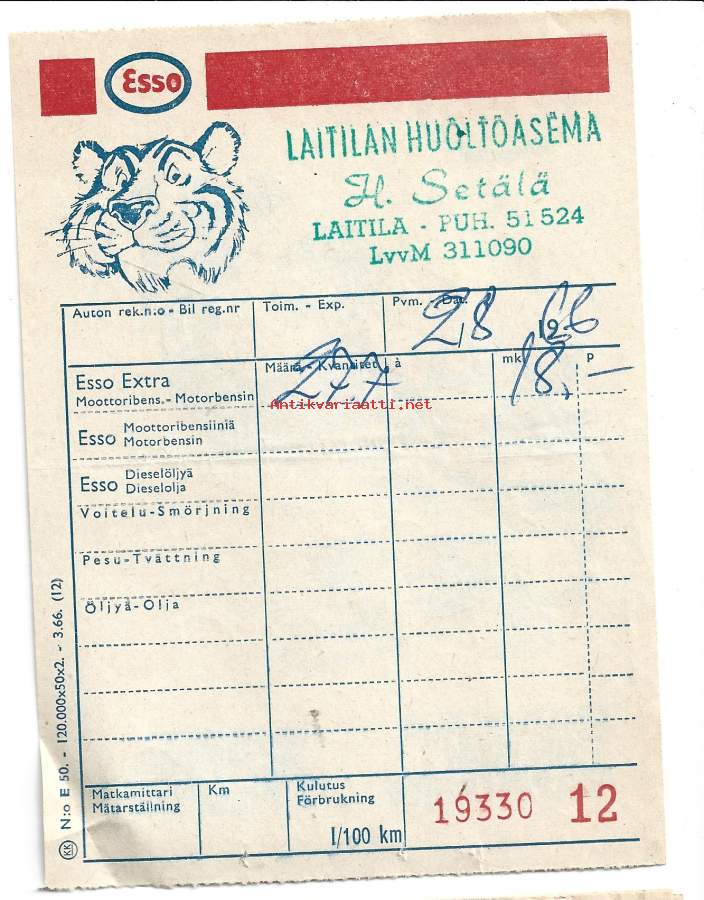 Esso
LAITILAN HUOLTOASEMA
H. Setälä
LAITILA - PUH. 51524
LvvM 311090
Auton rek.n:o - Bil reg.nr
Toim. - Exp.
Pvm. - Dat.
2,8 1966
Määrä - Kvantitet
à
mk
p
Esso Extra
Moottoribens. - Motorbensin
27.7
18,-
Antikvariaatti.net
Esso Moottoribensiiniä
Motorbensin
Esso Dieselöljyä
Dieselolja
Voitelu-Smörjning
Pesu-Tvättning
Öljyä-Olja
KK N:o E 50. - 120.000x50x2. - 3.66. (12)
Matkamittari
Mätarställning
Km
Kulutus
Förbrukning
l/100 km
19330 12